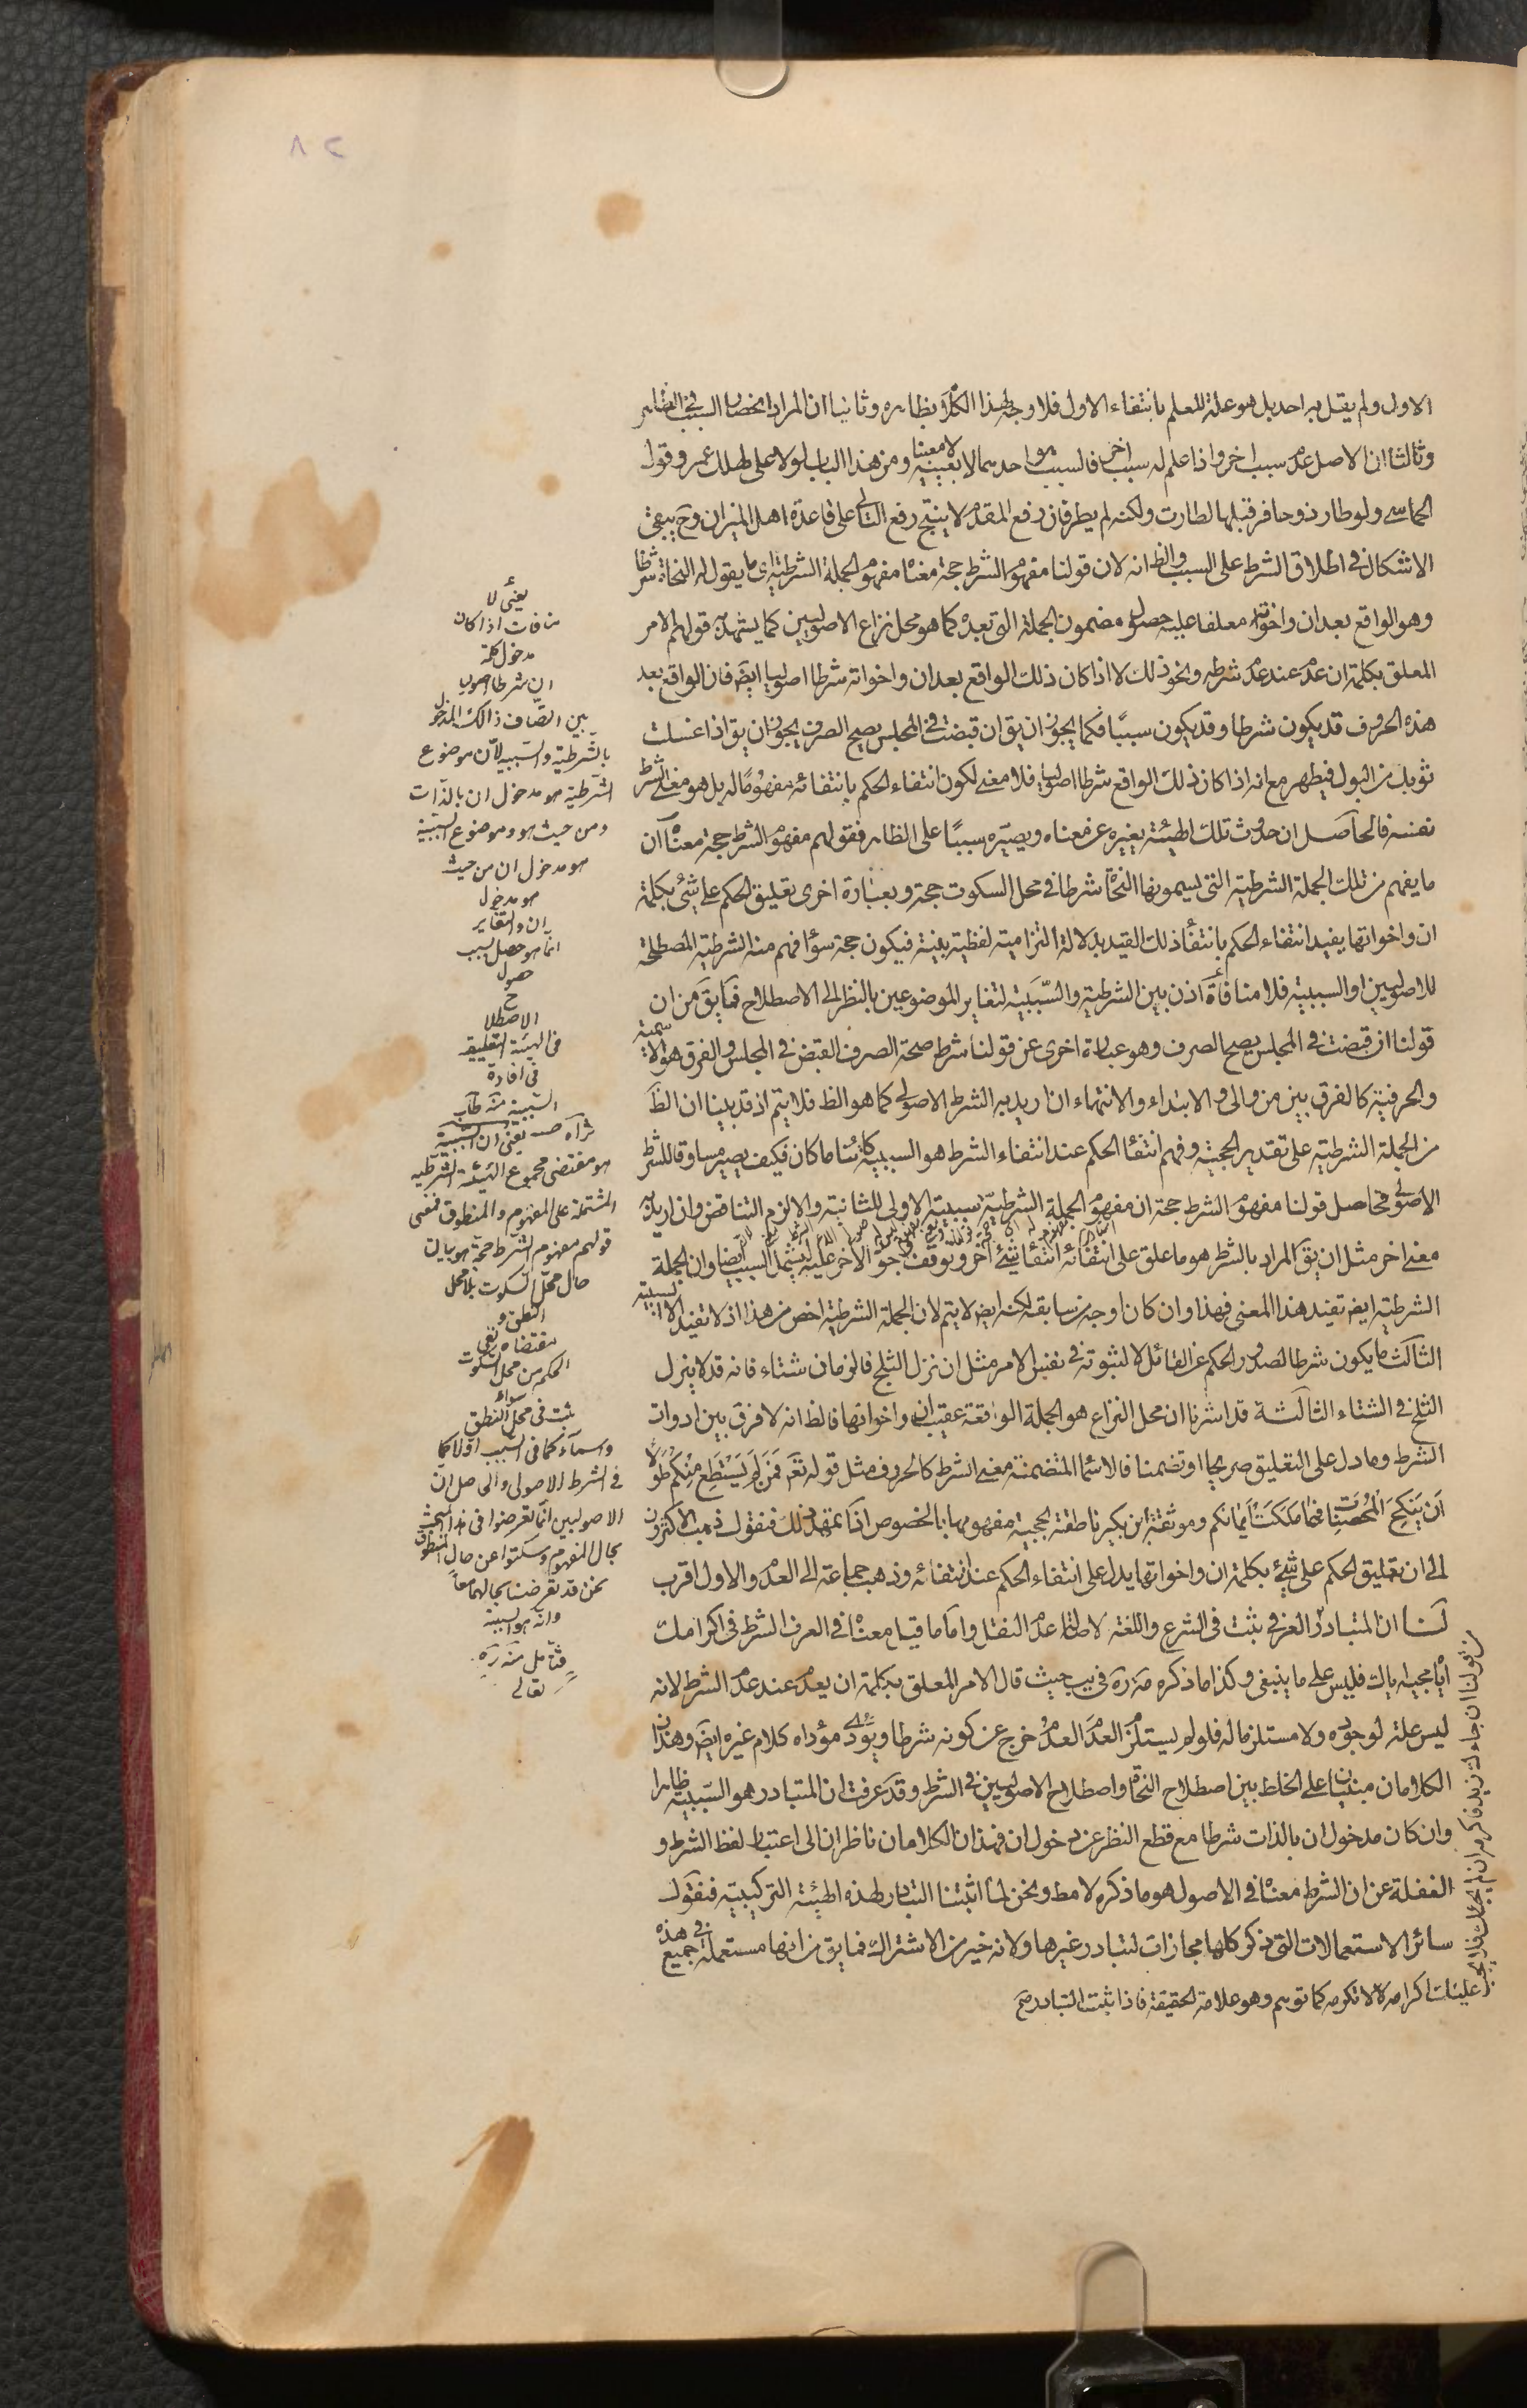 ٨٢
الاول ولم يقل به احد بل هو علة للعلم بانتفاء الاول فلا وجه لهذا الكلام بظاهره وثانيا ان المراد انحصار السبب في الظاهر
وثالثا ان الاصل عدم سبب اخر واذا علم له سبب اخر فالسبب هو احدهما لا بعينه لا معينا ومن هذا الباب لولا علي لهلك عمر وقول
الحماسي ولو طار ذو حافر قبلها لطارت ولكنه لم يطر فان رفع المقدم لا ينتج رفع التالي على قاعدة اهل الميزان وح يبقى
الاشكال في اطلاق الشرط على السبب والظ انه لان قولنا مفهوم الشرط حجة معناه مفهوم الجملة الشرطية اي ما يقول له النحاة شرطا
وهو الواقع بعد ان واخواتها معلقا عليه حصول مضمون الجملة التي بعده كما هو محل نزاع الاصوليين كما يشهد به قولهم الامر
المعلق بكلمة ان عدم عند عدم شرطه ونحو ذلك لا اذا كان ذلك الواقع بعد ان واخواته شرطا اصوليا ايضا فان الواقع بعد
هذه الحروف قد يكون شرطا وقد يكون سببا فكما يجوز ان يق ان قبضت في المجلس يصح الصرف يجوز ان يق اذا غسلت
ثوبك من البول فيطهر مع انه اذا كان ذلك الواقع شرطا اصوليا فلا معنى لكون انتفاء الحكم بانتفائه مفهوما له بل هو معنى الشرط
نفسه فالحاصل ان حدوث تلك الهيئة يغيره عن معناه ويصيره سببا على الظاهر فقولهم مفهوم الشرط حجة معناه ان
ما يفهم من تلك الجملة الشرطية التي يسمونها النحاة شرطا في محل السكوت حجة وبعبارة اخرى تعليق الحكم على شئ بكلمة
ان واخواتها يفيد انتفاء الحكم بانتفاء ذلك القيد بدلالة التزامية لفظية بينة فيكون حجة سواء فهم منه الشرطية المصطلحة
للاصوليين او السببية فلا منافاة اذن بين الشرطية والسببية لتغاير الموضوعين بالنظر الى الاصطلاح فما يق من ان
قولنا ان قبضت في المجلس يصح الصرف وهو عبارة اخرى عن قولنا شرط صحة الصرف القبض في المجلس والفرق هو الاسمية
والحرفية كالفرق بين من والى والابتداء والانتهاء ان اريد به الشرط الاصولي كما هو الظ فلا يتم اذ قد بينا ان الظ
من الجملة الشرطية على تقدير الحجية وفهم انتفاء الحكم عند انتفاء الشرط هو السببية كائنا ما كان فكيف يصير مساوقا للشرط
الاصولي فحاصل قولنا مفهوم الشرط حجة ان مفهوم الجملة الشرطية سببية الاولى للثانية والا لزم التناقض وان اريد به
معنى اخر مثل ان يق المراد بالشرط هو ما علق على انتفائه انتفاء شئ آخر وتوقف وجود الاخر عليه ليشمل السبب ايضا وان الجملة
الشرطية ايضا تفيد هذا المعنى فهذا وان كان اوجه من سابقه لكنه ايضا لا يتم لان الجملة الشرطية اخص من هذا اذ لا تفيد الا السببية
الثالث ما يكون شرطا لصدور الحكم عن القائل لا لثبوته في نفس الامر مثل ان نزل الثلج فالزمان شتاء فانه قد لا ينزل
الثلج في الشتاء الثالثة قد اشرنا ان محل النزاع هو الجملة الواقعة عقيب ان واخواتها فالظ انه لا فرق بين ادوات
الشرط وما دل على التعليق صريحا او تضمنا فالاسماء المتضمنة معنى الشرط كالحروف مثل قوله تعم فَمَنْ لَمْ يَسْتَطِعْ مِنْكُمْ طَوْلًا
اَنْ يَنْكِحَ الْمُحْصَنات فَمِمّا مَلَكَتْ اَيْمانكم وموثقة ابن بكير ناطقة بحجية مفهومها بالخصوص اذا تمهد ذلك فنقول ذهب الاكثرون
الى ان تعليق الحكم على شئ بكلمة ان واخواتها يدل على انتفاء الحكم عند انتفائه وذهب جماعة الى العدم والاول اقرب
لنا ان المتبادر العرفي يثبت في الشرع واللغة لاصالة عدم النقل واما ما قيل معناه في العرف الشرط في اكرامك
اياه مجيئه اياك فليس على ما ينبغي وكذا ما ذكره مة ره في يب حيث قال الامر المعلق بكلمة ان يعدم عند عدم الشرط لانه
ليس علة لوجوده ولا مستلزما له فلو لم يستلزم العدم العدم خرج عن كونه شرطا ويؤدي مؤداه كلام غيره ايضا وهذان
الكلامان مبنيان على الخلط بين اصطلاح النحاة واصطلاح الاصوليين في الشرط وقد عرفت ان المتبادر هو السببية ظاهرا
وان كان مدخول ان بالذات شرطا مع قطع النظر عن دخول ان فهذان الكلامان ناظران الى اعتبار لفظ الشرط و
الغفلة عن ان الشرط معناه في الاصول هو ما ذكره لا مط ونحن لما اثبتنا التبادر لهذه الهيئة التركيبية فنقول
سائر الاستعمالات التي ذكر كلها مجازات لتبادر غيرها ولانه خير من الاشتراك فما يق من انها مستعملة في جميع هذه
عليك اكرامه لا لا تكرمه كما توهم وهو علامة الحقيقة فاذا ثبت التبادر صح
يعنى لا
منافات اذا كان
مدخول كلمة
ان شرطا اصوليا
بين اتصاف ذالك المدخول
بالشرطية والسببية لان موضوع
الشرطية هو مدخول ان بالذات
ومن حيث هو وموضوع السببية
هو مدخول ان من حيث
هو مدخول
ان والتغاير
انما هو حصل بسبب
حصول
ح
الاصطلا
فى الهيئة التعليقية
فى افادة
السببية منه طاب
ثراه يعنى ان السببية
هو مقتضى مجموع الهيئة الشرطية
المشتملة على المفهوم والمنطوق فمعنى
قولهم مفهوم الشرط حجة هو بيان
حال محل السكوت بلا محل
النطق و
مقتضاه نفى
الحكم من محل السكوت
سواء
ثبت فى محل النطق
واسماءه كما فى السبب او لا كما
فى الشرط الاصولى والحاصل ان
الاصوليين انما تعرضوا فى هذا المبحث
بحال المفهوم وسكتوا عن حال المنطوق
نحن قد تعرضنا بحالهما معا
وانه هو السببية
فتأمل منه ره
تعالى